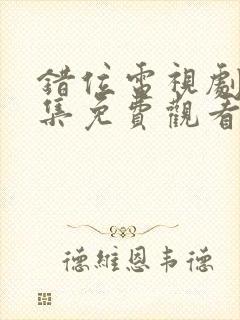 錯位電視劇
集免費觀看
德維恩韦德